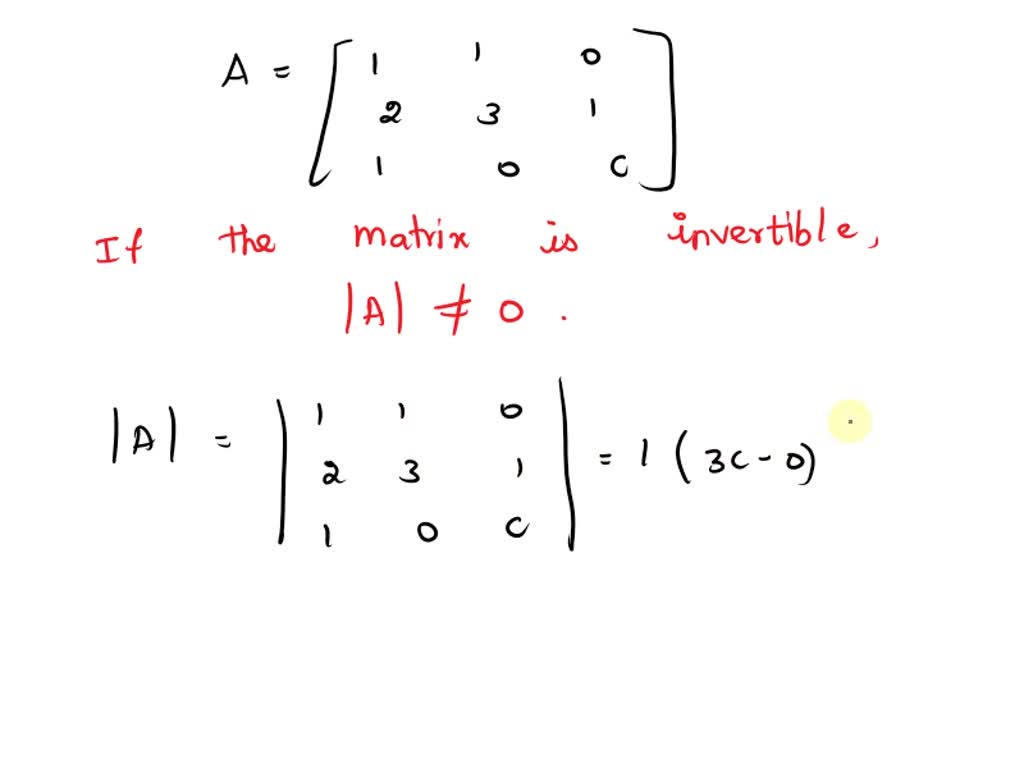 A = [ 1 1 0
2 3 1
1 0 C ]
If the matrix is invertible,
|A| ≠ 0 .
|A| = | 1 1 0
2 3 1
1 0 C | = 1 ( 3C - 0)